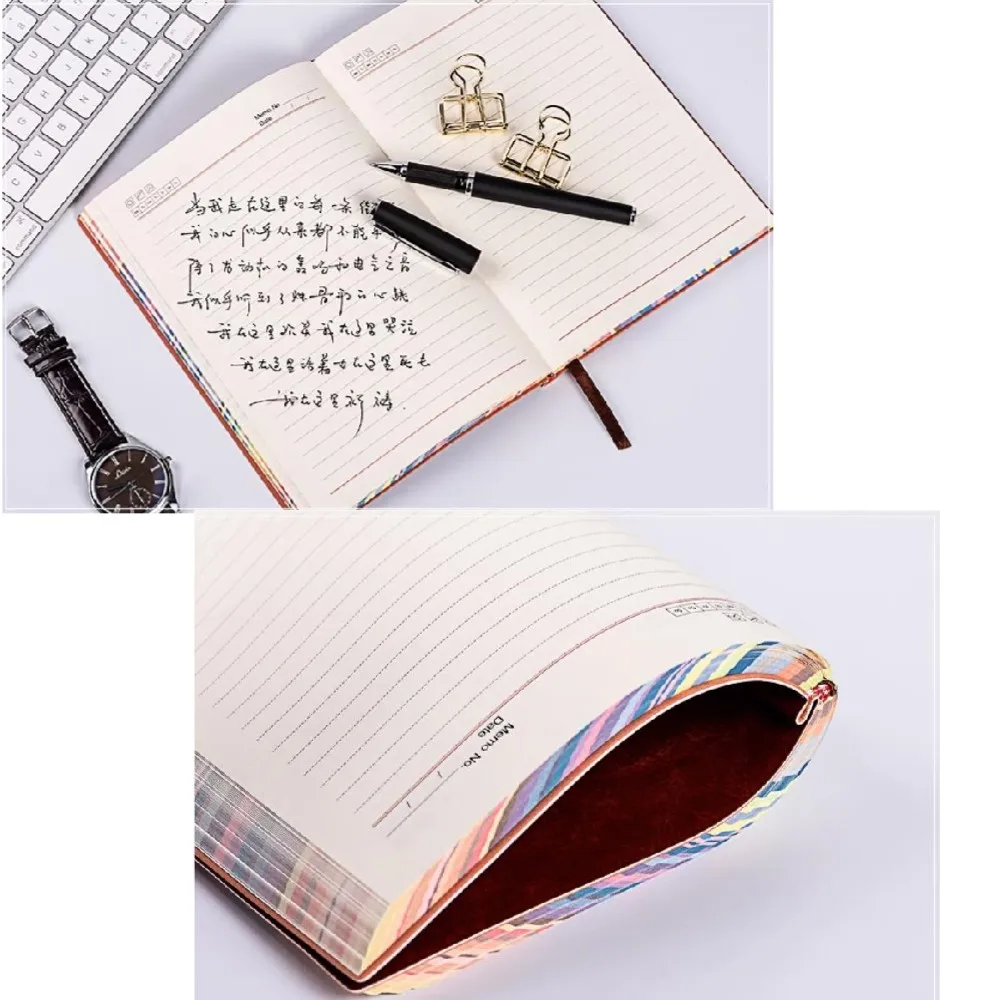 Memo No
Date / /
当我走在这里的每一条街
我的心似乎从来都不能
除了发动机的轰鸣和电气之音
我似乎听到了烛骨般的心跳
我在这里欢笑我在这里哭泣
我在这里活着也在这里死去
我在这里祈祷
command
option
command
Memo No.
Date / /